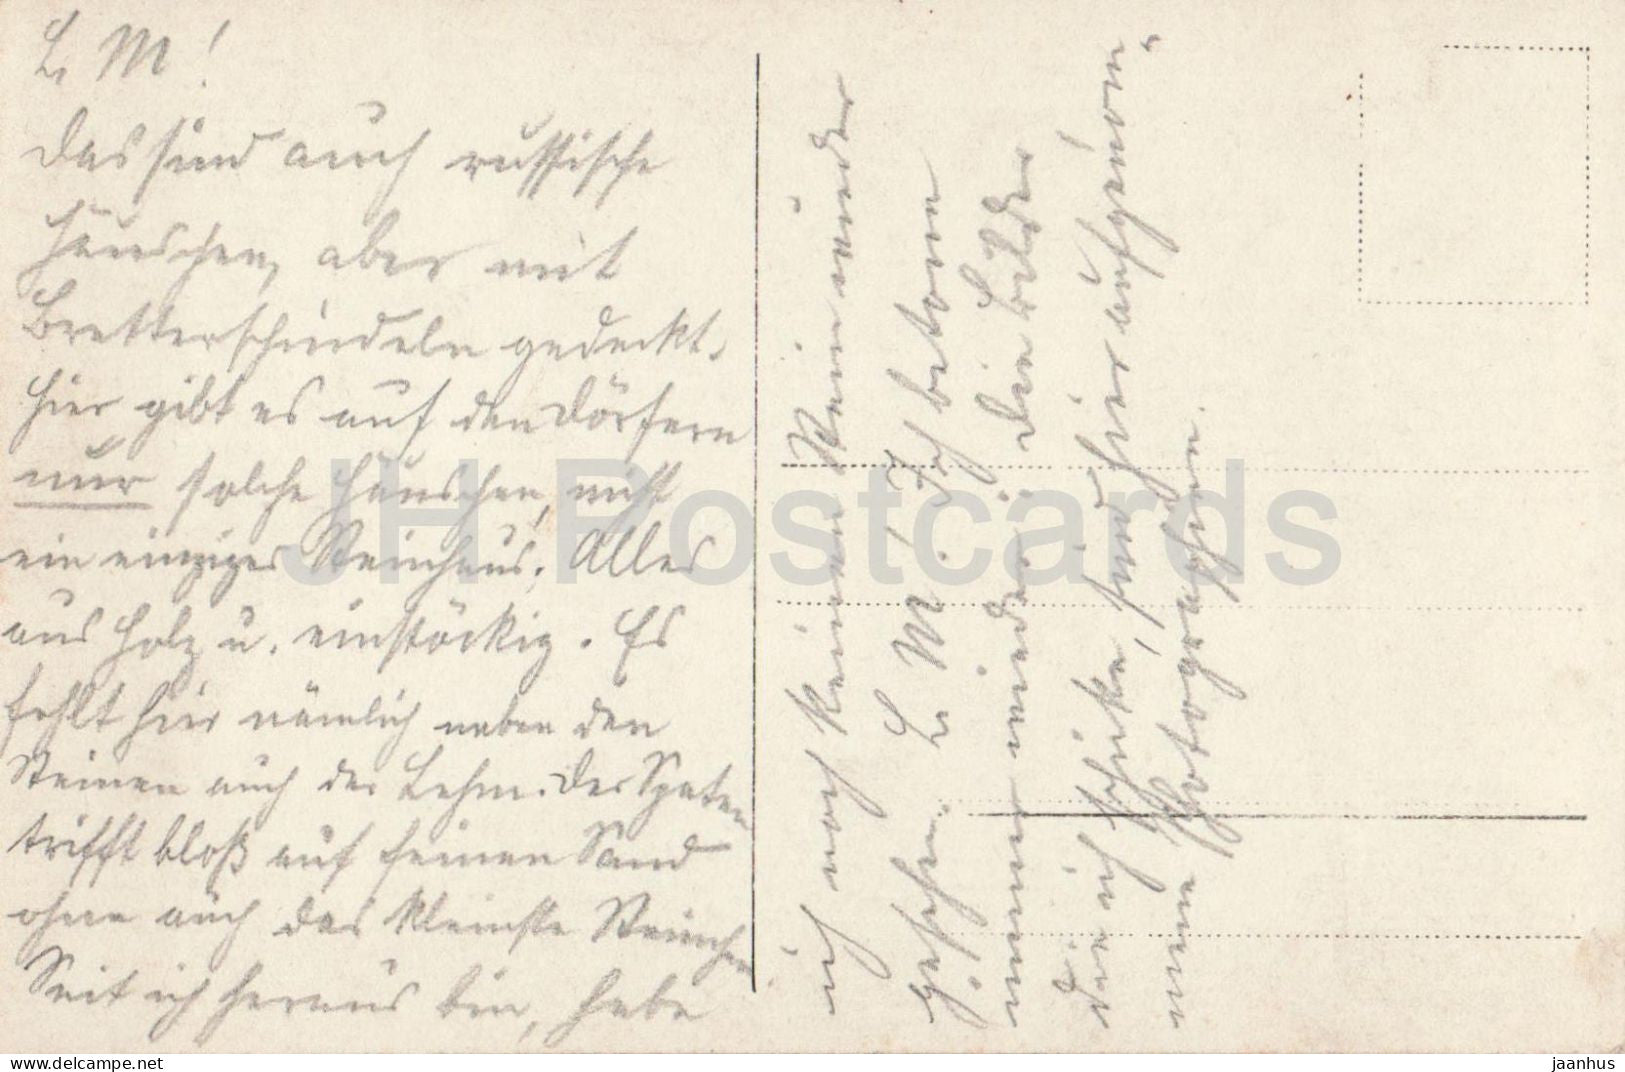 L. M!
Das sind auch russische
Häuschen, aber mit
Bretterschindeln gedeckt.
Hier gibt es auf den Dörfern
nur solche Häuschen, nicht
ein einziges Steinhaus. Alles
aus Holz u. einstöckig. Es
fehlt hier nämlich neben den
Steinen auch der Lehm. Der Spaten
trifft bloß auf feinen Sand
ohne auch das kleinste Steinchen
Seit ich heraus bin, habe
ich noch keinen Stein wieder
gesehen. L. M. Ich betone
immer wieder: die Bilder
die ich schicke, sind hier aufgenom̄
mene Photographien.
JH Postcards
www.delcampe.net
jaanhus